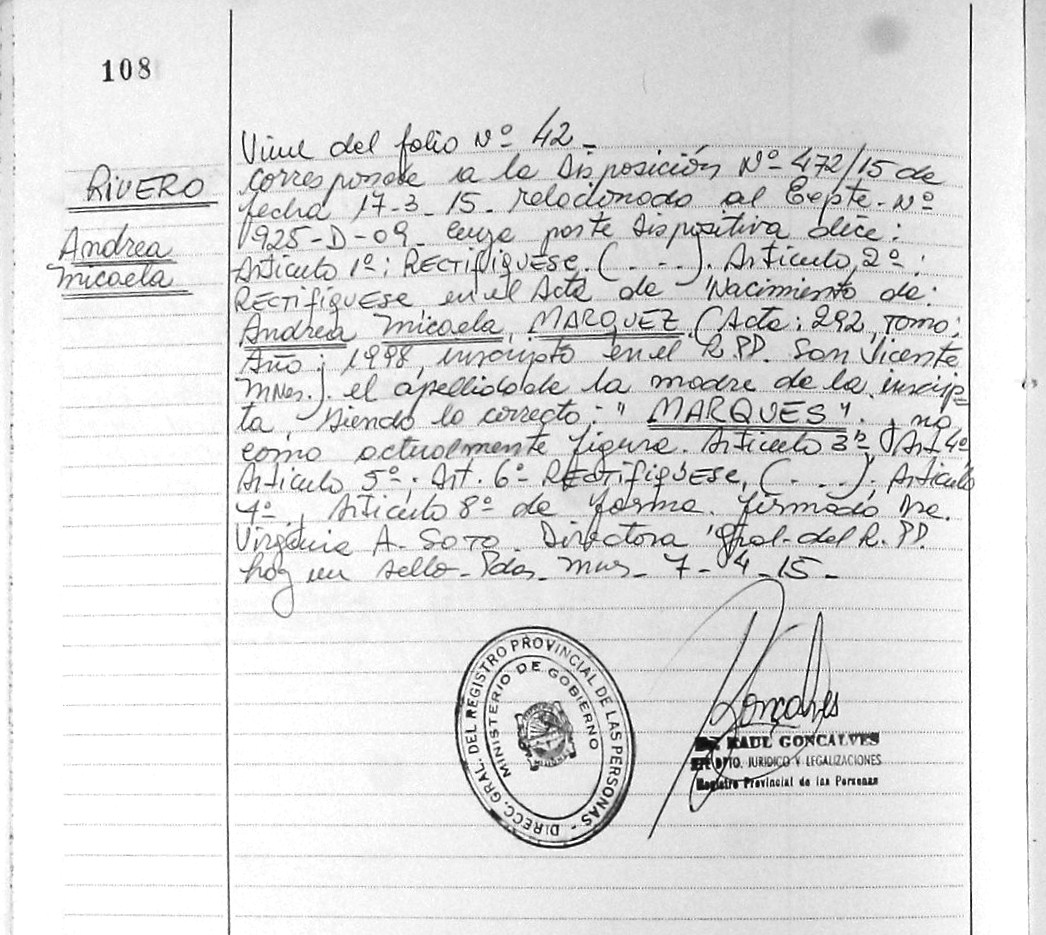 108
RIVERO
Andrea
Micaela
Viene del folio Nº 42-
corresponde a la Disposición Nº 472/15 de
fecha 17-3-15. relacionado al Expte-Nº
925-D-09- cuya parte dispositiva dice:
Artículo 1º: RECTIFIQUESE, (...). Artículo 2º:
RECTIFÍQUESE en el Acta de Nacimiento de:
Andrea Micaela MARQUEZ (Acta: 292, Tomo:
Año: 1998, inscripto en el R.PP. San Vicente
Mnes.) el apellido de la madre de la inscrip-
ta, siendo lo correcto: "MARQUES". , no
como actualmente figura. Artículo 3º, Art 4º
Artículo 5º. Art. 6º RECTIFÍQUESE, (...), Artículo
7º, Artículo 8º de forma. firmado Dra.
Virginia A. Soto. Directora Gral-del R.PP.
hay un sello-Pdas-Mnes-7-4-15-
DIRECC. GRAL. DEL REGISTRO PROVINCIAL DE LAS PERSONAS -
MINISTERIO DE GOBIERNO
Goncalves
Dr. RAUL GONCALVES
DPTO. JURIDICO Y LEGALIZACIONES
Registro Provincial de las Personas